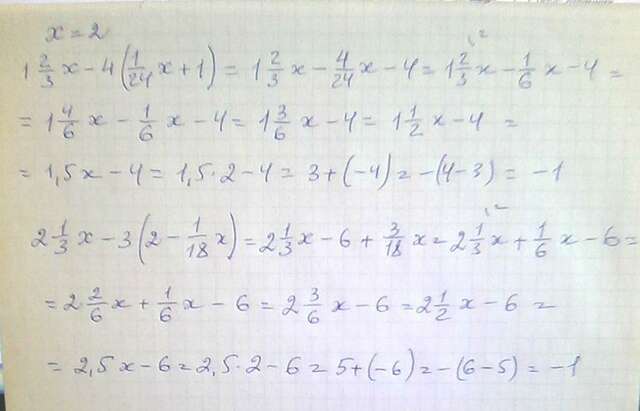 x = 2
1 2/3 x - 4 (1/24 x + 1) = 1 2/3 x - 4/24 x - 4 = 1 2/3 \² x - 1/6 x - 4 =
= 1 4/6 x - 1/6 x - 4 = 1 3/6 x - 4 = 1 1/2 x - 4 =
= 1,5x - 4 = 1,5 · 2 - 4 = 3 + (-4) = -(4-3) = -1
2 1/3 x - 3 (2 - 1/18 x) = 2 1/3 x - 6 + 3/18 x = 2 1/3 \² x + 1/6 x - 6 =
= 2 2/6 x + 1/6 x - 6 = 2 3/6 x - 6 = 2 1/2 x - 6 =
= 2,5x - 6 = 2,5 · 2 - 6 = 5 + (-6) = -(6-5) = -1